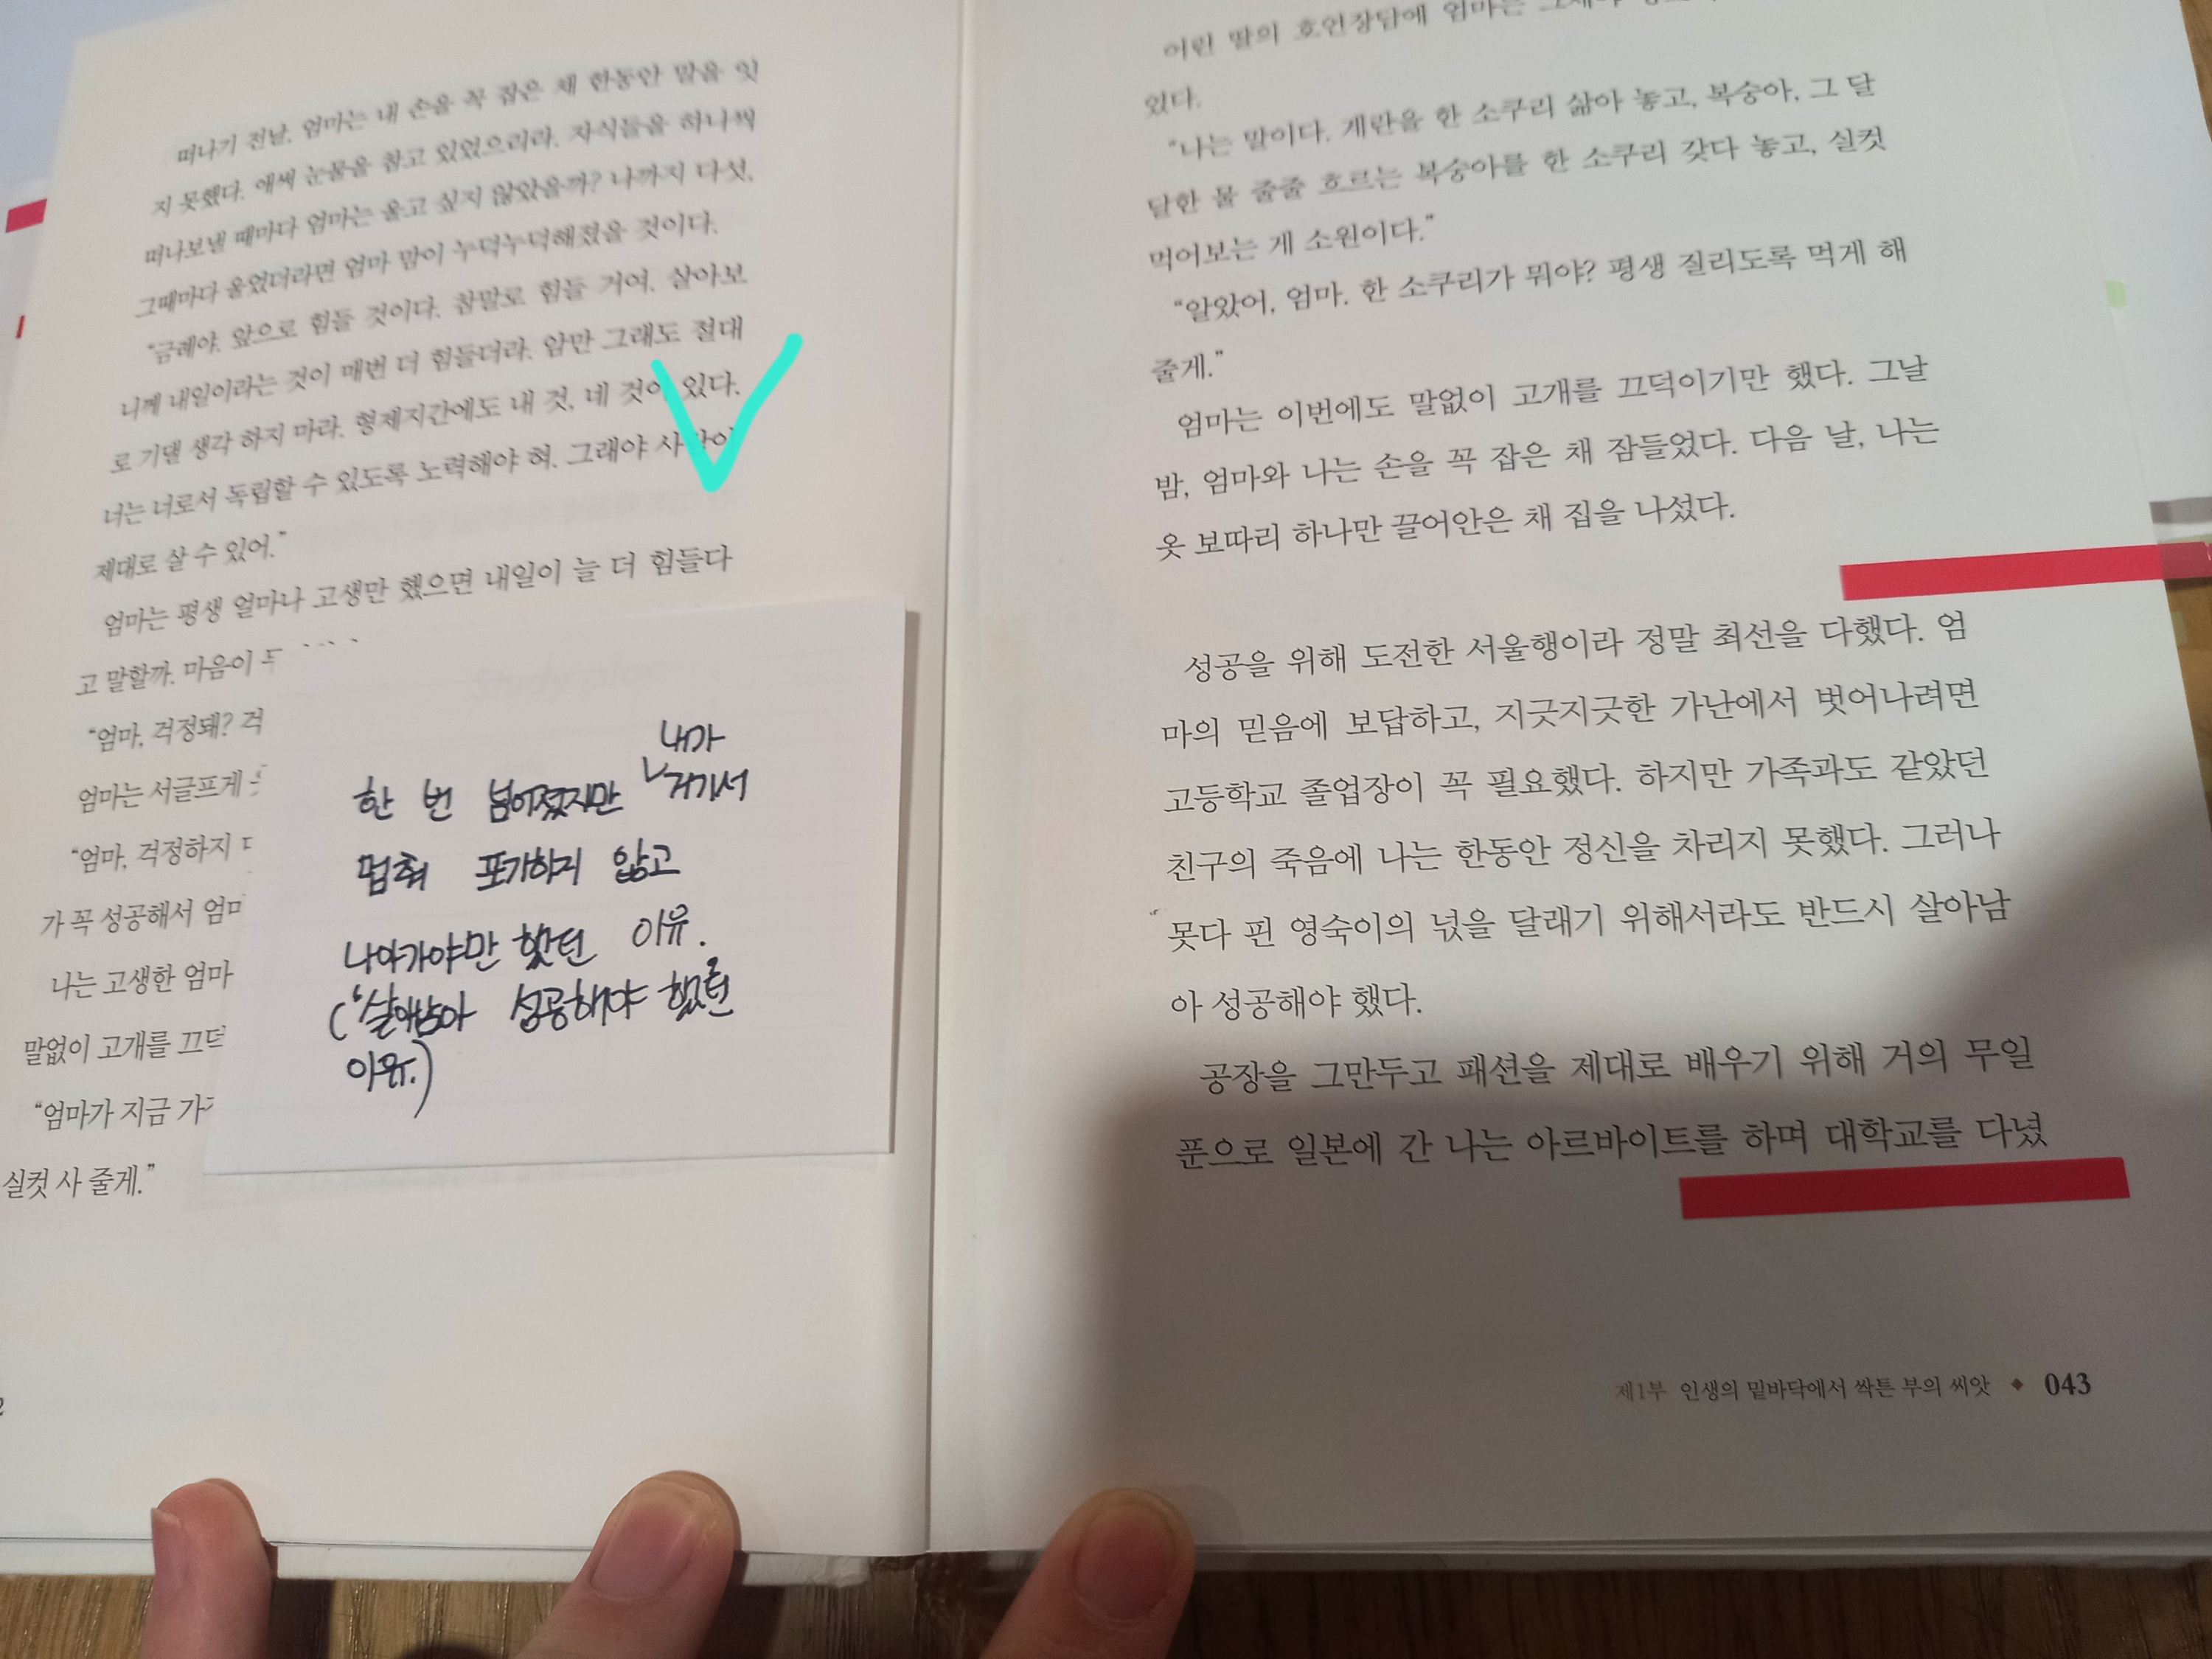 떠나기 전날, 엄마는 내 손을 꼭 잡은 채 한동안 말을 잇
지 못했다. 애써 눈물을 참고 있었으리라. 자식들을 하나씩
떠나보낼 때마다 엄마는 울고 싶지 않았을까? 나까지 다섯,
그때마다 울었더라면 엄마 맘이 누덕누덕해졌을 것이다.
"금례야. 앞으로 힘들 것이다. 참말로 힘들 거여. 살아보
니께 내일이라는 것이 매번 더 힘들더라. 암만 그래도 절대
로 기댈 생각 하지 마라. 형제지간에도 내 것, 네 것이 있다.
너는 너로서 독립할 수 있도록 노력해야 혀. 그래야 사람이
제대로 살 수 있어."
엄마는 평생 얼마나 고생만 했으면 내일이 늘 더 힘들다
고 말할까. 마음이
"엄마, 걱정돼? 걱
엄마는 서글프게
"엄마, 걱정하지
가 꼭 성공해서 엄마
나는 고생한 엄마
말없이 고개를 끄덕
"엄마가 지금 가
실컷 사 줄게."
내가
한 번 넘어졌지만 거기서
멈춰 포기하지 않고
나아가야만 했던 이유.
('살아남아 성공해야 했던'
이유.)
2
어린 딸의 호언장담에 엄마는 그제야
있다.
"나는 말이다. 계란을 한 소쿠리 삶아 놓고, 복숭아, 그 달
달한 물 줄줄 흐르는 복숭아를 한 소쿠리 갖다 놓고, 실컷
먹어보는 게 소원이다."
"알았어, 엄마. 한 소쿠리가 뭐야? 평생 질리도록 먹게 해
줄게."
엄마는 이번에도 말없이 고개를 끄덕이기만 했다. 그날
밤, 엄마와 나는 손을 꼭 잡은 채 잠들었다. 다음 날, 나는
옷 보따리 하나만 끌어안은 채 집을 나섰다.
성공을 위해 도전한 서울행이라 정말 최선을 다했다. 엄
마의 믿음에 보답하고, 지긋지긋한 가난에서 벗어나려면
고등학교 졸업장이 꼭 필요했다. 하지만 가족과도 같았던
친구의 죽음에 나는 한동안 정신을 차리지 못했다. 그러나
못다 핀 영숙이의 넋을 달래기 위해서라도 반드시 살아남
아 성공해야 했다.
공장을 그만두고 패션을 제대로 배우기 위해 거의 무일
푼으로 일본에 간 나는 아르바이트를 하며 대학교를 다녔
제1부 인생의 밑바닥에서 싹튼 부의 씨앗 ◆ 043